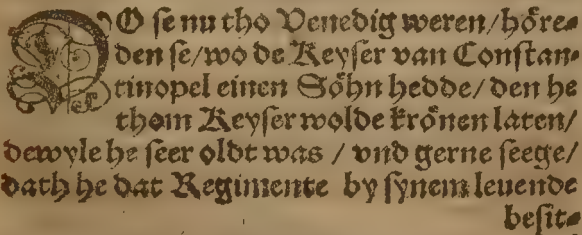 DO se nu tho Venedig weren/ hoͤre⸗
den se/ wo de Keyser van Constan⸗
tinopel einen Soͤhn hedde/ den he
thom Keyser wolde kroͤnen laten/
dewyle he seer oldt was / vnd gerne seege/
dath he dat Regimente by synem leuende
besit⸗